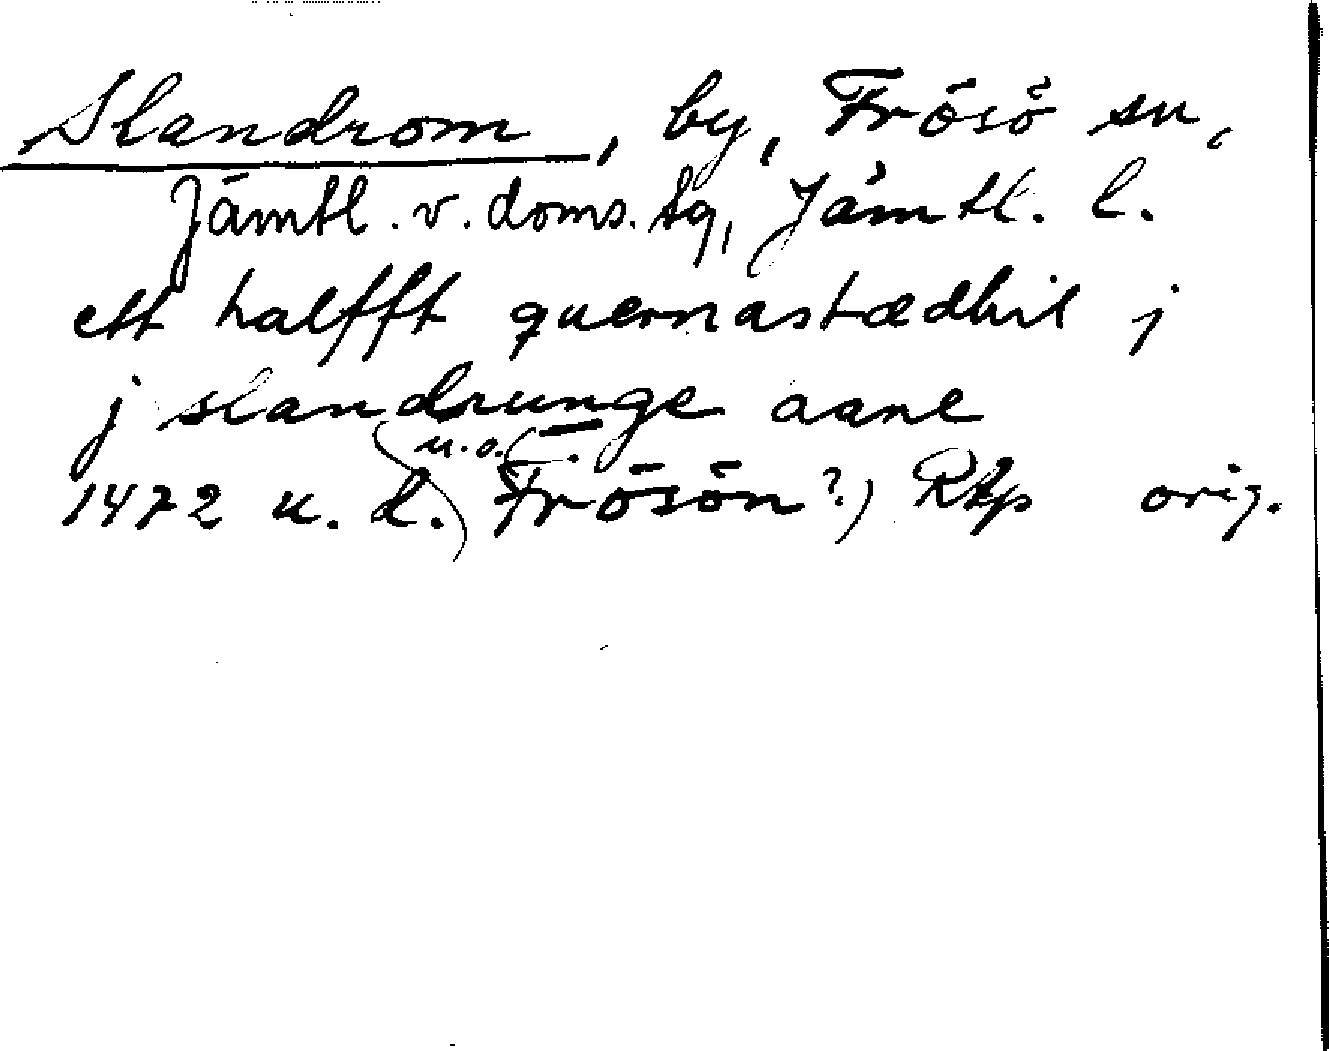 Slandrom, by, Frösö sn,
Jämtl. v. doms. tg, Jämtl. l.
ett halfft quernastædhit j
j slandrunge aane
u.o.
1472 u. d. Frösön?) RAp orig.